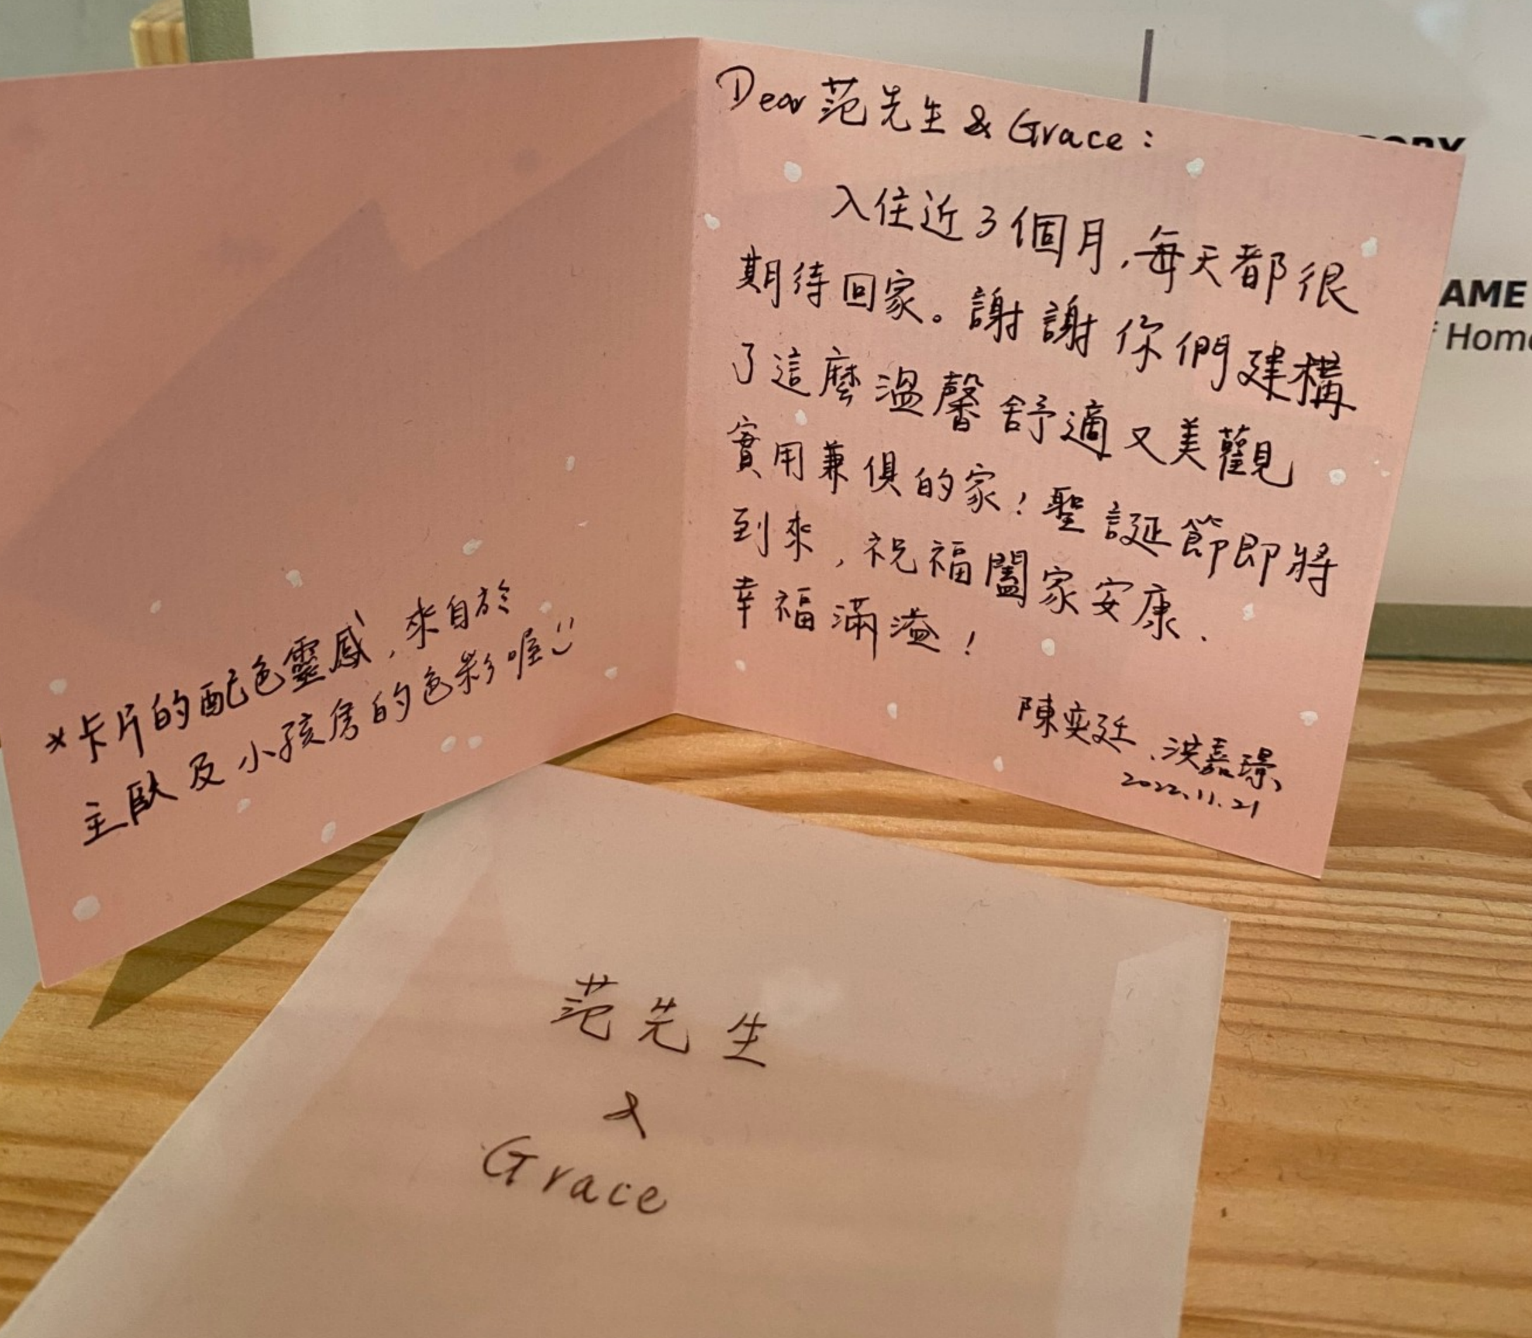 Dear 范先生 & Grace：
入住近3個月，每天都很
期待回家。謝謝你們建構
了這麼溫馨舒適又美觀
實用兼俱的家！聖誕節即將
到來，祝福闔家安康、
幸福滿溢！
陳奕廷、洪嘉璟
2022.11.21
*卡片的配色靈感，來自於
主臥及小孩房的色彩喔
范先生
&
Grace
AME
Home